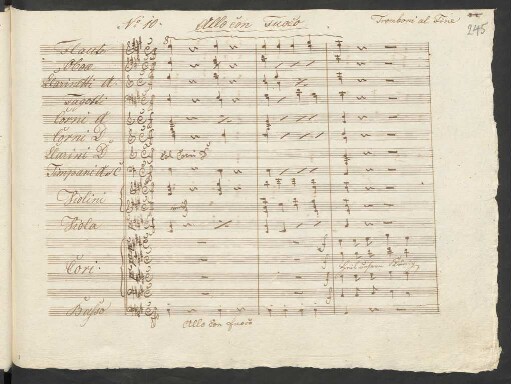 No 10. Allo con Fuoco Tromboni al Fine
245
Flauti
Oboe
Clarinetti A.
Fagotti
Corni A
Corni D
Clarini D Col Corni
Timpani
Violini
Viola
Cori.
Basso
Allo Con fuoco